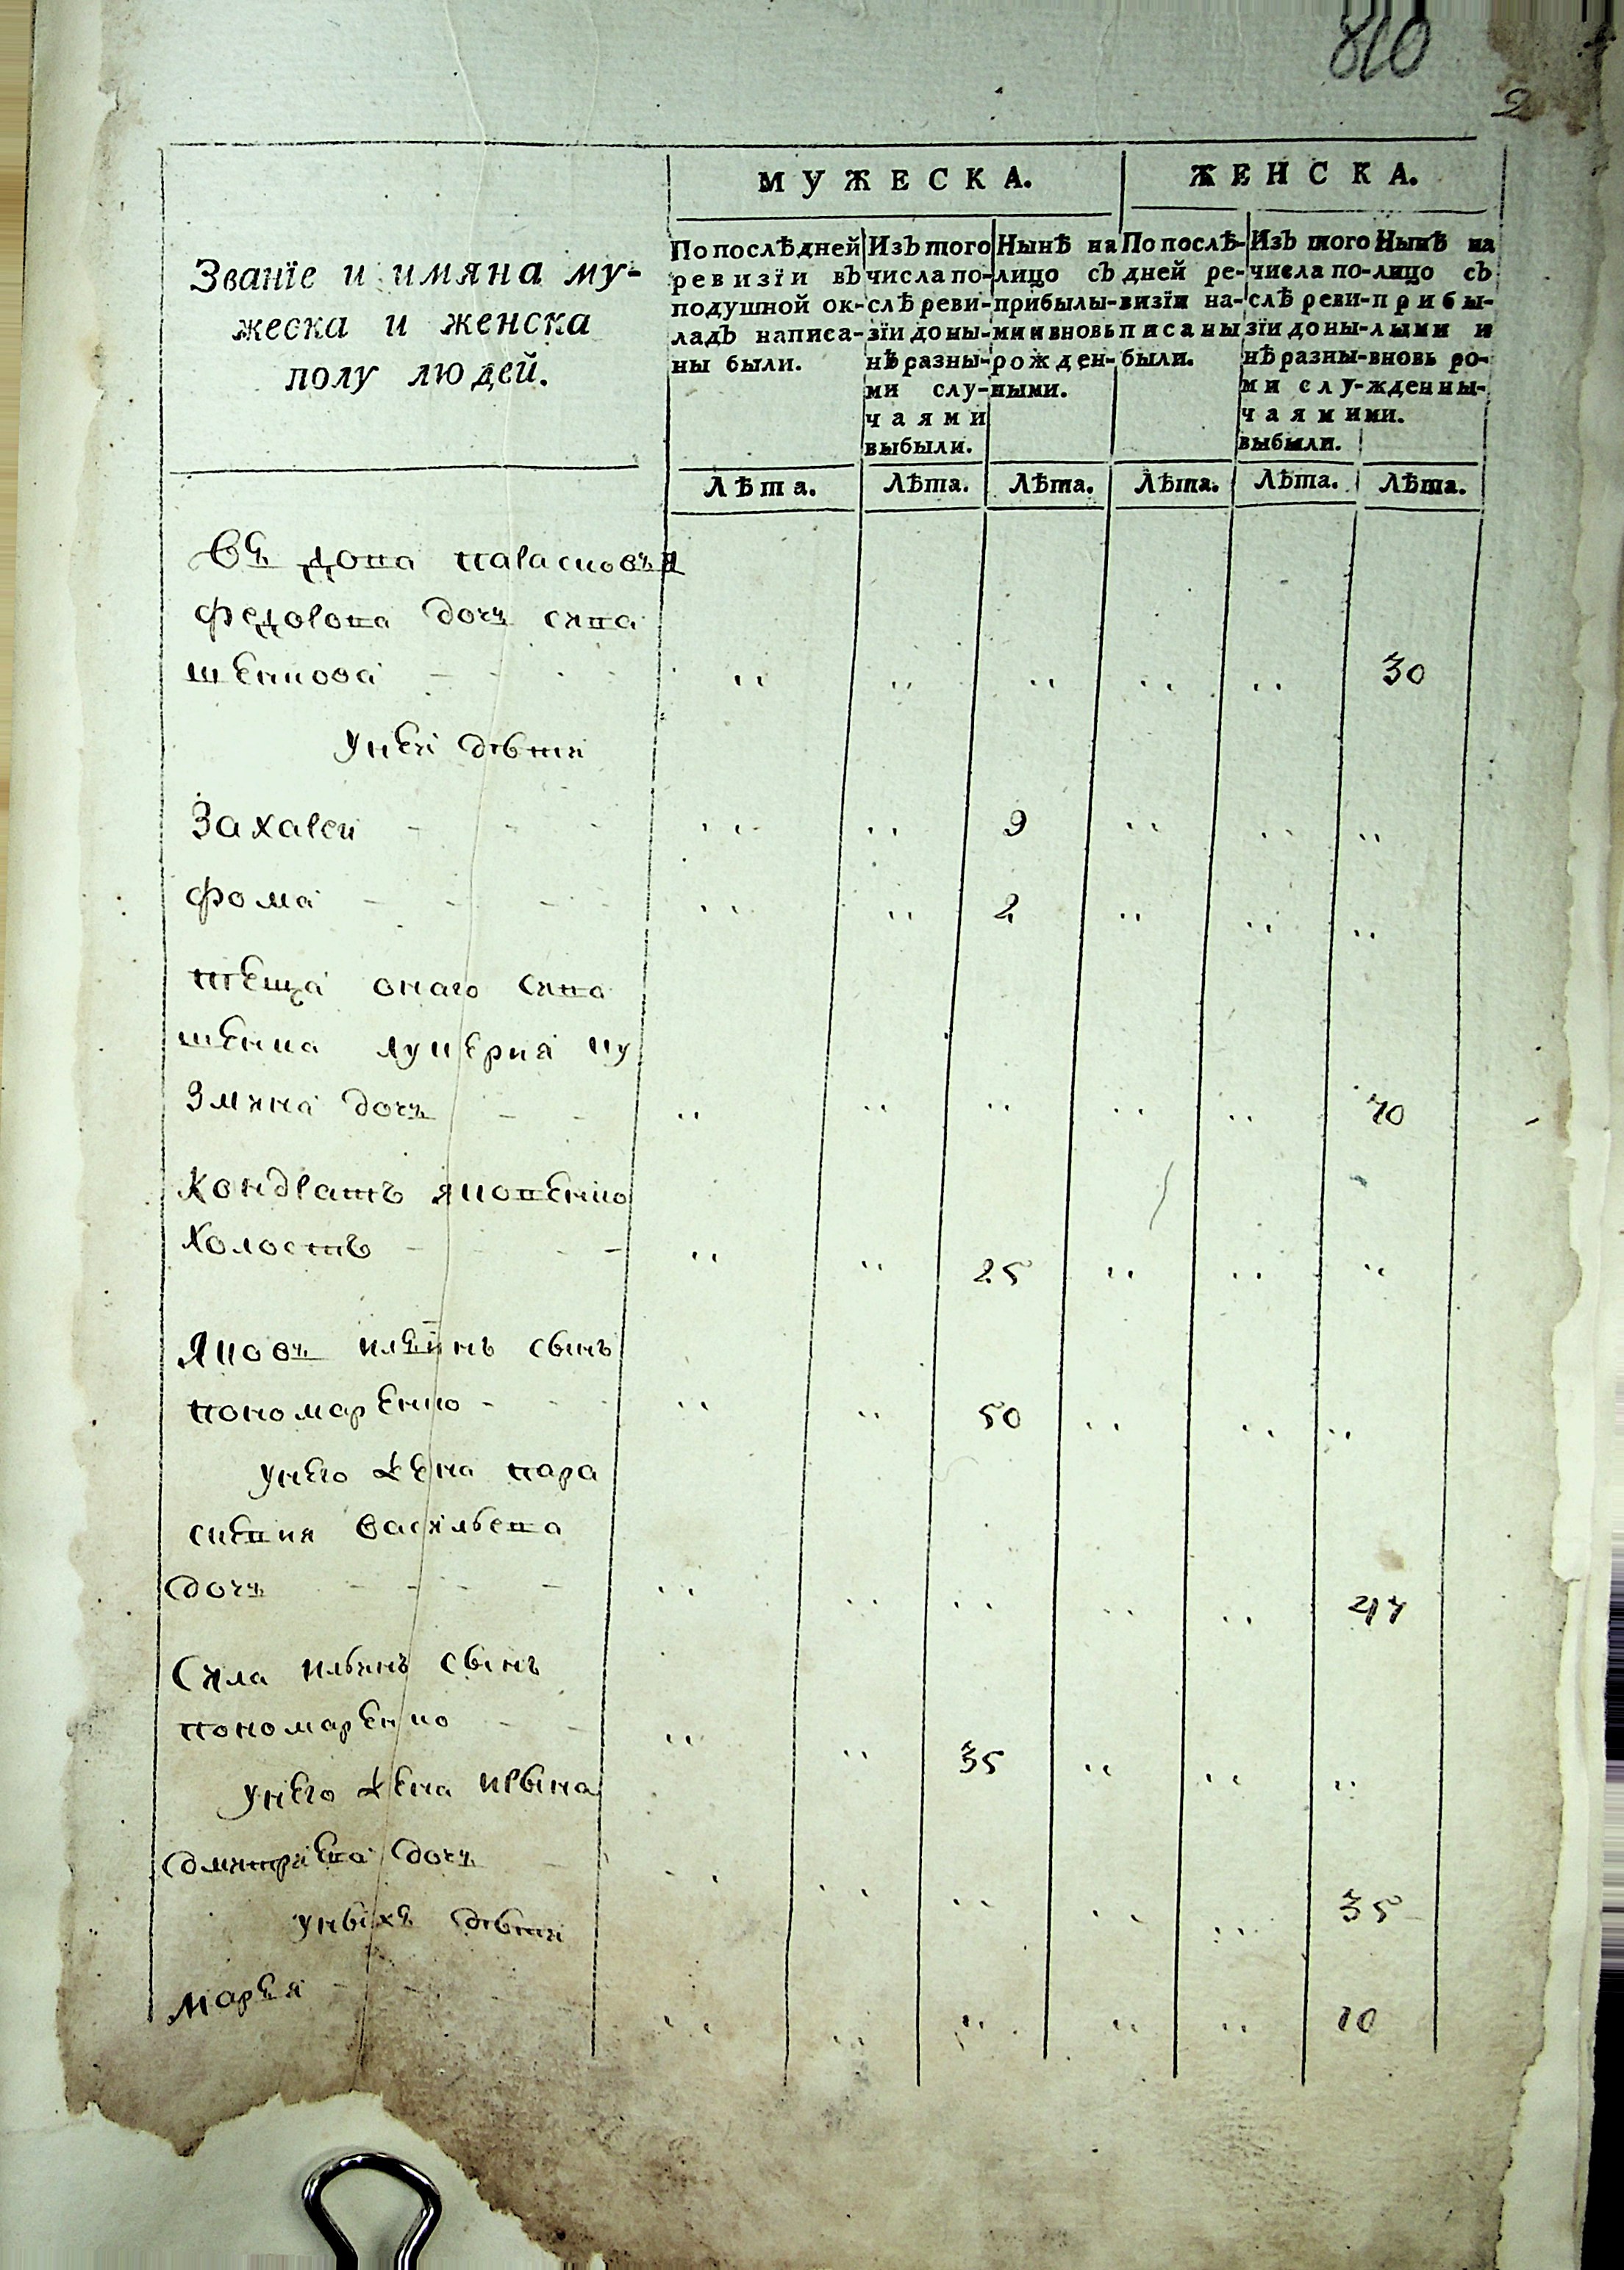 810
2
МУЖЕСКА.
ЖЕНСКА.
Званїе и имяна му-
жеска и женска
полу людей.
По послѣдней
ревизїи въ
подушной ок-
ладъ написа-
ны были.
Изъ того
числа по-
слѣ реви-
зїи до ны-
нѣ разны-
ми слу-
чаями
выбыли.
Нынѣ на
лицо съ
прибылы-
ми и вновь
рожден-
ными.
По послѣ-
дней ре-
визїи на-
писаны
были.
Изъ того
числа по-
слѣ реви-
зїи до ны-
нѣ разны-
ми слу-
чаями
выбыли.
Нынѣ на
лицо съ
прибы-
лыми и
вновь ро-
жденны-
ми.
Лѣта. Лѣта. Лѣта. Лѣта. Лѣта. Лѣта.
федорова дочь
30
унея дѣти
Захарей 9
фома 2
теща онаго
дочь 70
Кондратъ
холостъ 25
Яковъ сынъ
пономаренко 50
унего жена пара
скевия васильева
дочь 47
Сила ильинъ сынъ
пономаренко 35
унего жена ирына
дмитриева дочь 35
уныхъ дѣти
марея 10